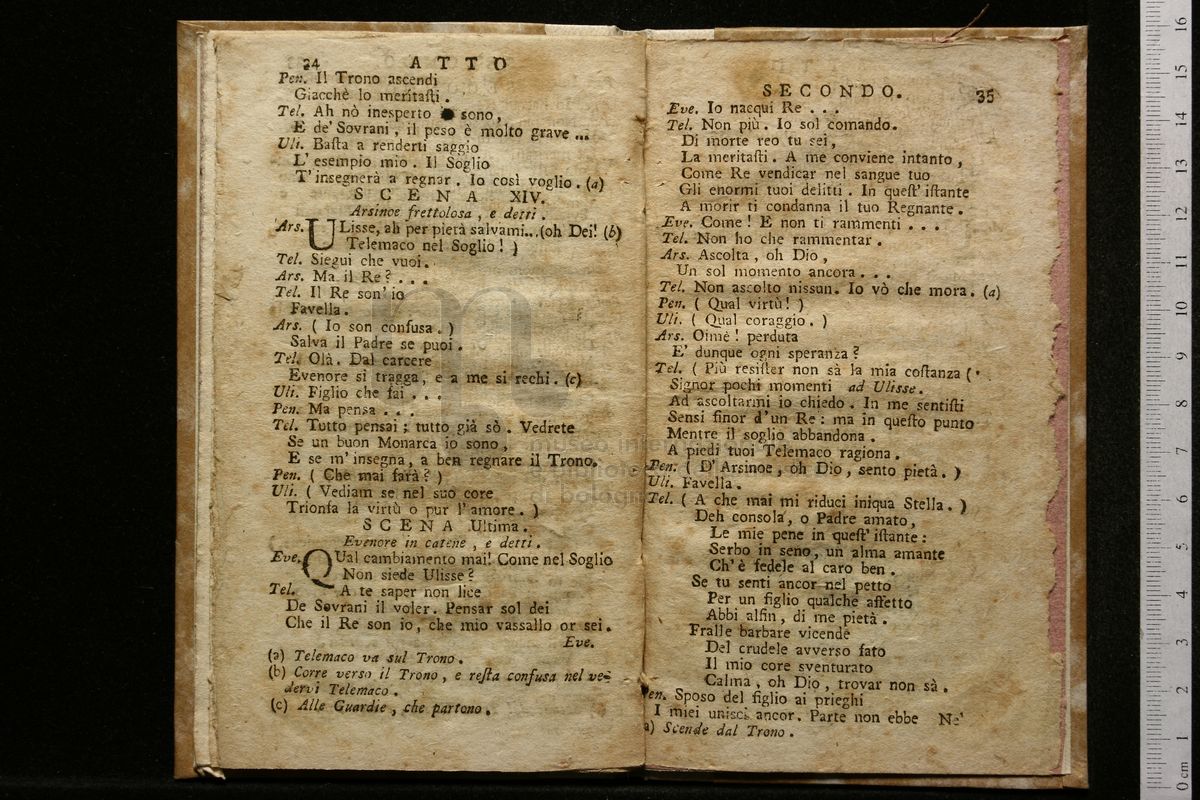 34 ATTO
Pen. Il Trono ascendi
Giacchè lo meritaſti.
Tel. Ah nò inesperto sono,
E de' Sovrani, il peso è molto grave ...
Uli. Baſta a renderti saggio
L' esempio mio. Il Soglio
T' insegnerà a regnar. Io così voglio. (a)
SCENA XIV.
Arsinoe frettolosa, e detti.
Ars. ULisse, ah per pietà salvami...(oh Dei! (b)
Telemaco nel Soglio! )
Tel. Siegui che vuoi.
Ars. Ma il Re? . . .
Tel. Il Re son' io
Favella.
Ars. ( Io son confusa. )
Salva il Padre se puoi.
Tel. Olà. Dal carcere
Evenore si tragga, e a me si rechi. (c)
Uli. Figlio che fai . . .
Pen. Ma pensa . . .
Tel. Tutto pensai; tutto già sò. Vedrete
Se un buon Monarca io sono,
E se m' insegna, a ben regnare il Trono.
Pen. ( Che mai farà? )
Uli. ( Vediam se nel suo core
Trionfa la virtù o pur l' amore. )
SCENA Ultima.
Evenore in catene, e detti.
Eve. QUal cambiamento mai! Come nel Soglio
Non siede Ulisse?
Tel. A te saper non lice
De Sovrani il voler. Pensar sol dei
Che il Re son io, che mio vassallo or sei.
Eve.
(a) Telemaco va sul Trono.
(b) Corre verso il Trono, e reſta confusa nel ve-
dervi Telemaco.
(c) Alle Guardie, che partono.
SECONDO. 35
Eve. Io nacqui Re . . .
Tel. Non più. Io sol comando.
Di morte reo tu sei,
La meritaſti. A me conviene intanto,
Come Re vendicar nel sangue tuo
Gli enormi tuoi delitti. In queſt' iſtante
A morir ti condanna il tuo Regnante.
Eve. Come! E non ti rammenti . . .
Tel. Non ho che rammentar.
Ars. Ascolta, oh Dio,
Un sol momento ancora . . .
Tel. Non ascolto nissun. Io vò che mora. (a)
Pen. ( Qual virtù! )
Uli. ( Qual coraggio. )
Ars. Oimè! perduta
E' dunque ogni speranza?
Tel. ( Più resiſter non sà la mia coſtanza (.
Signor pochi momenti ad Ulisse.
Ad ascoltarmi io chiedo. In me sentiſti
Sensi finor d' un Re: ma in queſto punto
Mentre il soglio abbandona.
A piedi tuoi Telemaco ragiona.
Pen. ( D' Arsinoe, oh Dio, sento pietà. )
Uli. Favella.
Tel. ( A che mai mi riduci iniqua Stella. )
Deh consola, o Padre amato,
Le mie pene in queſt' iſtante:
Serbo in seno, un alma amante
Ch' è fedele al caro ben.
Se tu senti ancor nel petto
Per un figlio qualche affetto
Abbi alfin, di me pietà.
Fralle barbare vicende
Del crudele avverso fato
Il mio core sventurato
Calma, oh Dio, trovar non sà.
en. Sposo del figlio ai prieghi
I miei unisci ancor. Parte non ebbe Ne'
a) Scende dal Trono.